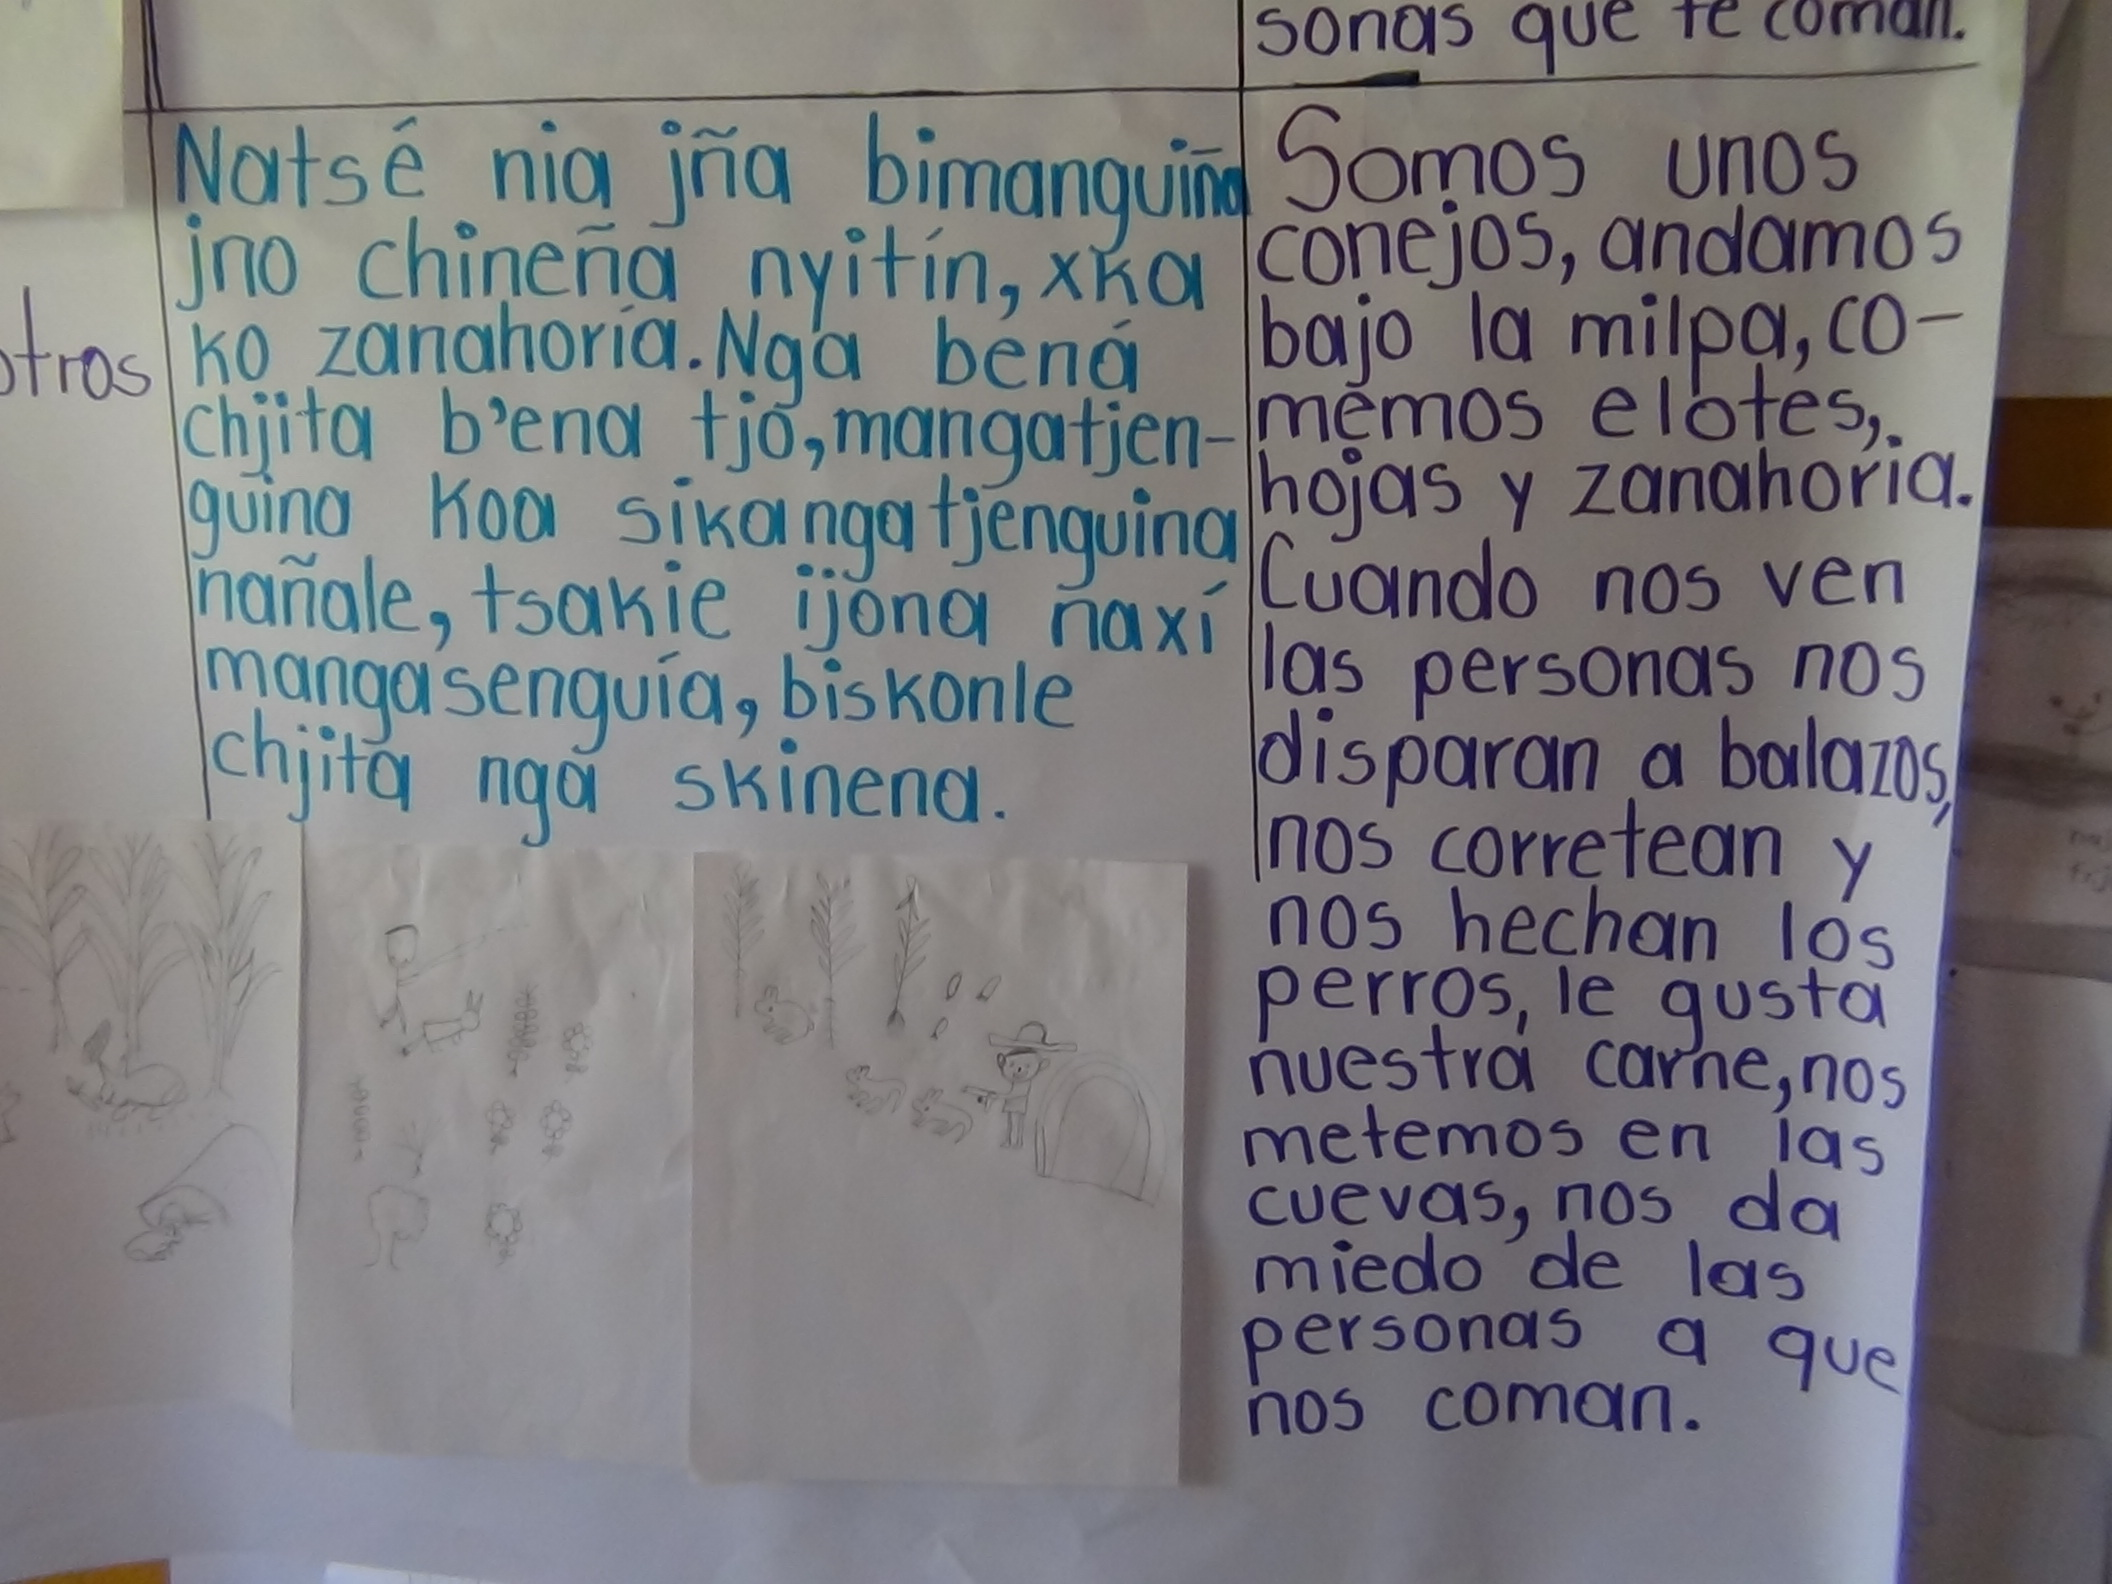 sonas que te coman.
otros
Natsé nia jña bimanguiña
jno chineña nyitín, xka
ko zanahoria. Nga bená
chjita b'ena tjo, mangatjen-
guina koa sikangatjenguina
nañale, tsakie ijona naxí
mangasenguía, biskonle
chjita nga skinena.
Somos unos
conejos, andamos
bajo la milpa, co-
memos elotes,
hojas y zanahoria.
Cuando nos ven
las personas nos
disparan a balazos,
nos corretean y
nos hechan los
perros, le gusta
nuestra carne, nos
metemos en las
cuevas, nos da
miedo de las
personas a que
nos coman.